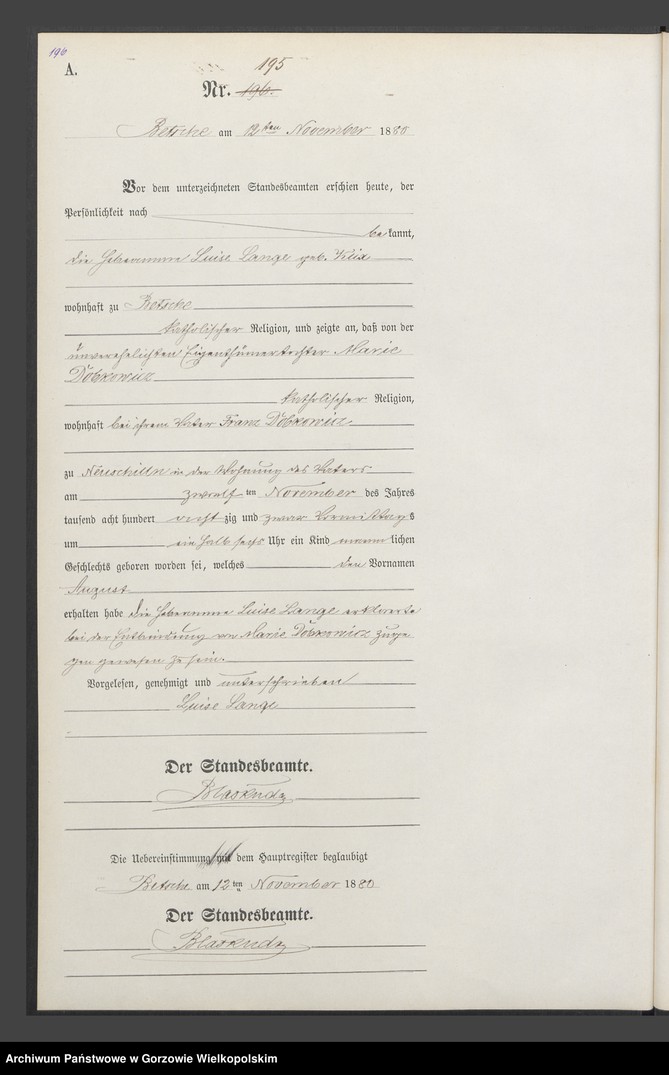 196
A.
195
Nr. 196.
Betsche am 12ten November 1880
Vor dem unterzeichneten Standesbeamten erschien heute, der
Persönlichkeit nach
bekannt,
die Hebamme Luise Lange geb.
wohnhaft zu Betsche
katholischer Religion, und zeigte an, daß von der
unverehelichten Eigenthümertochter Marie
Dobkowicz
katholischer Religion,
wohnhaft bei ihrem Vater Franz Dobkowicz
zu in der Wohnung des Vaters
am zwoelf ten November des Jahres
tausend acht hundert acht zig und zwar Vormittags
um ein halb sechs Uhr ein Kind maennlichen
Geschlechts geboren worden sei, welches den Vornamen
August
erhalten habe die Hebamme Luise Lange erklaerte
bei der Entbindung von Marie Dobkowicz zuge
gen gewesen zu sein.
Vorgelesen, genehmigt und unterschrieben
Luise Lange
Der Standesbeamte.
Die Uebereinstimmung mit dem Hauptregister beglaubigt
Betsche am 12ten November 1880
Der Standesbeamte.
Archiwum Państwowe w Gorzowie Wielkopolskim